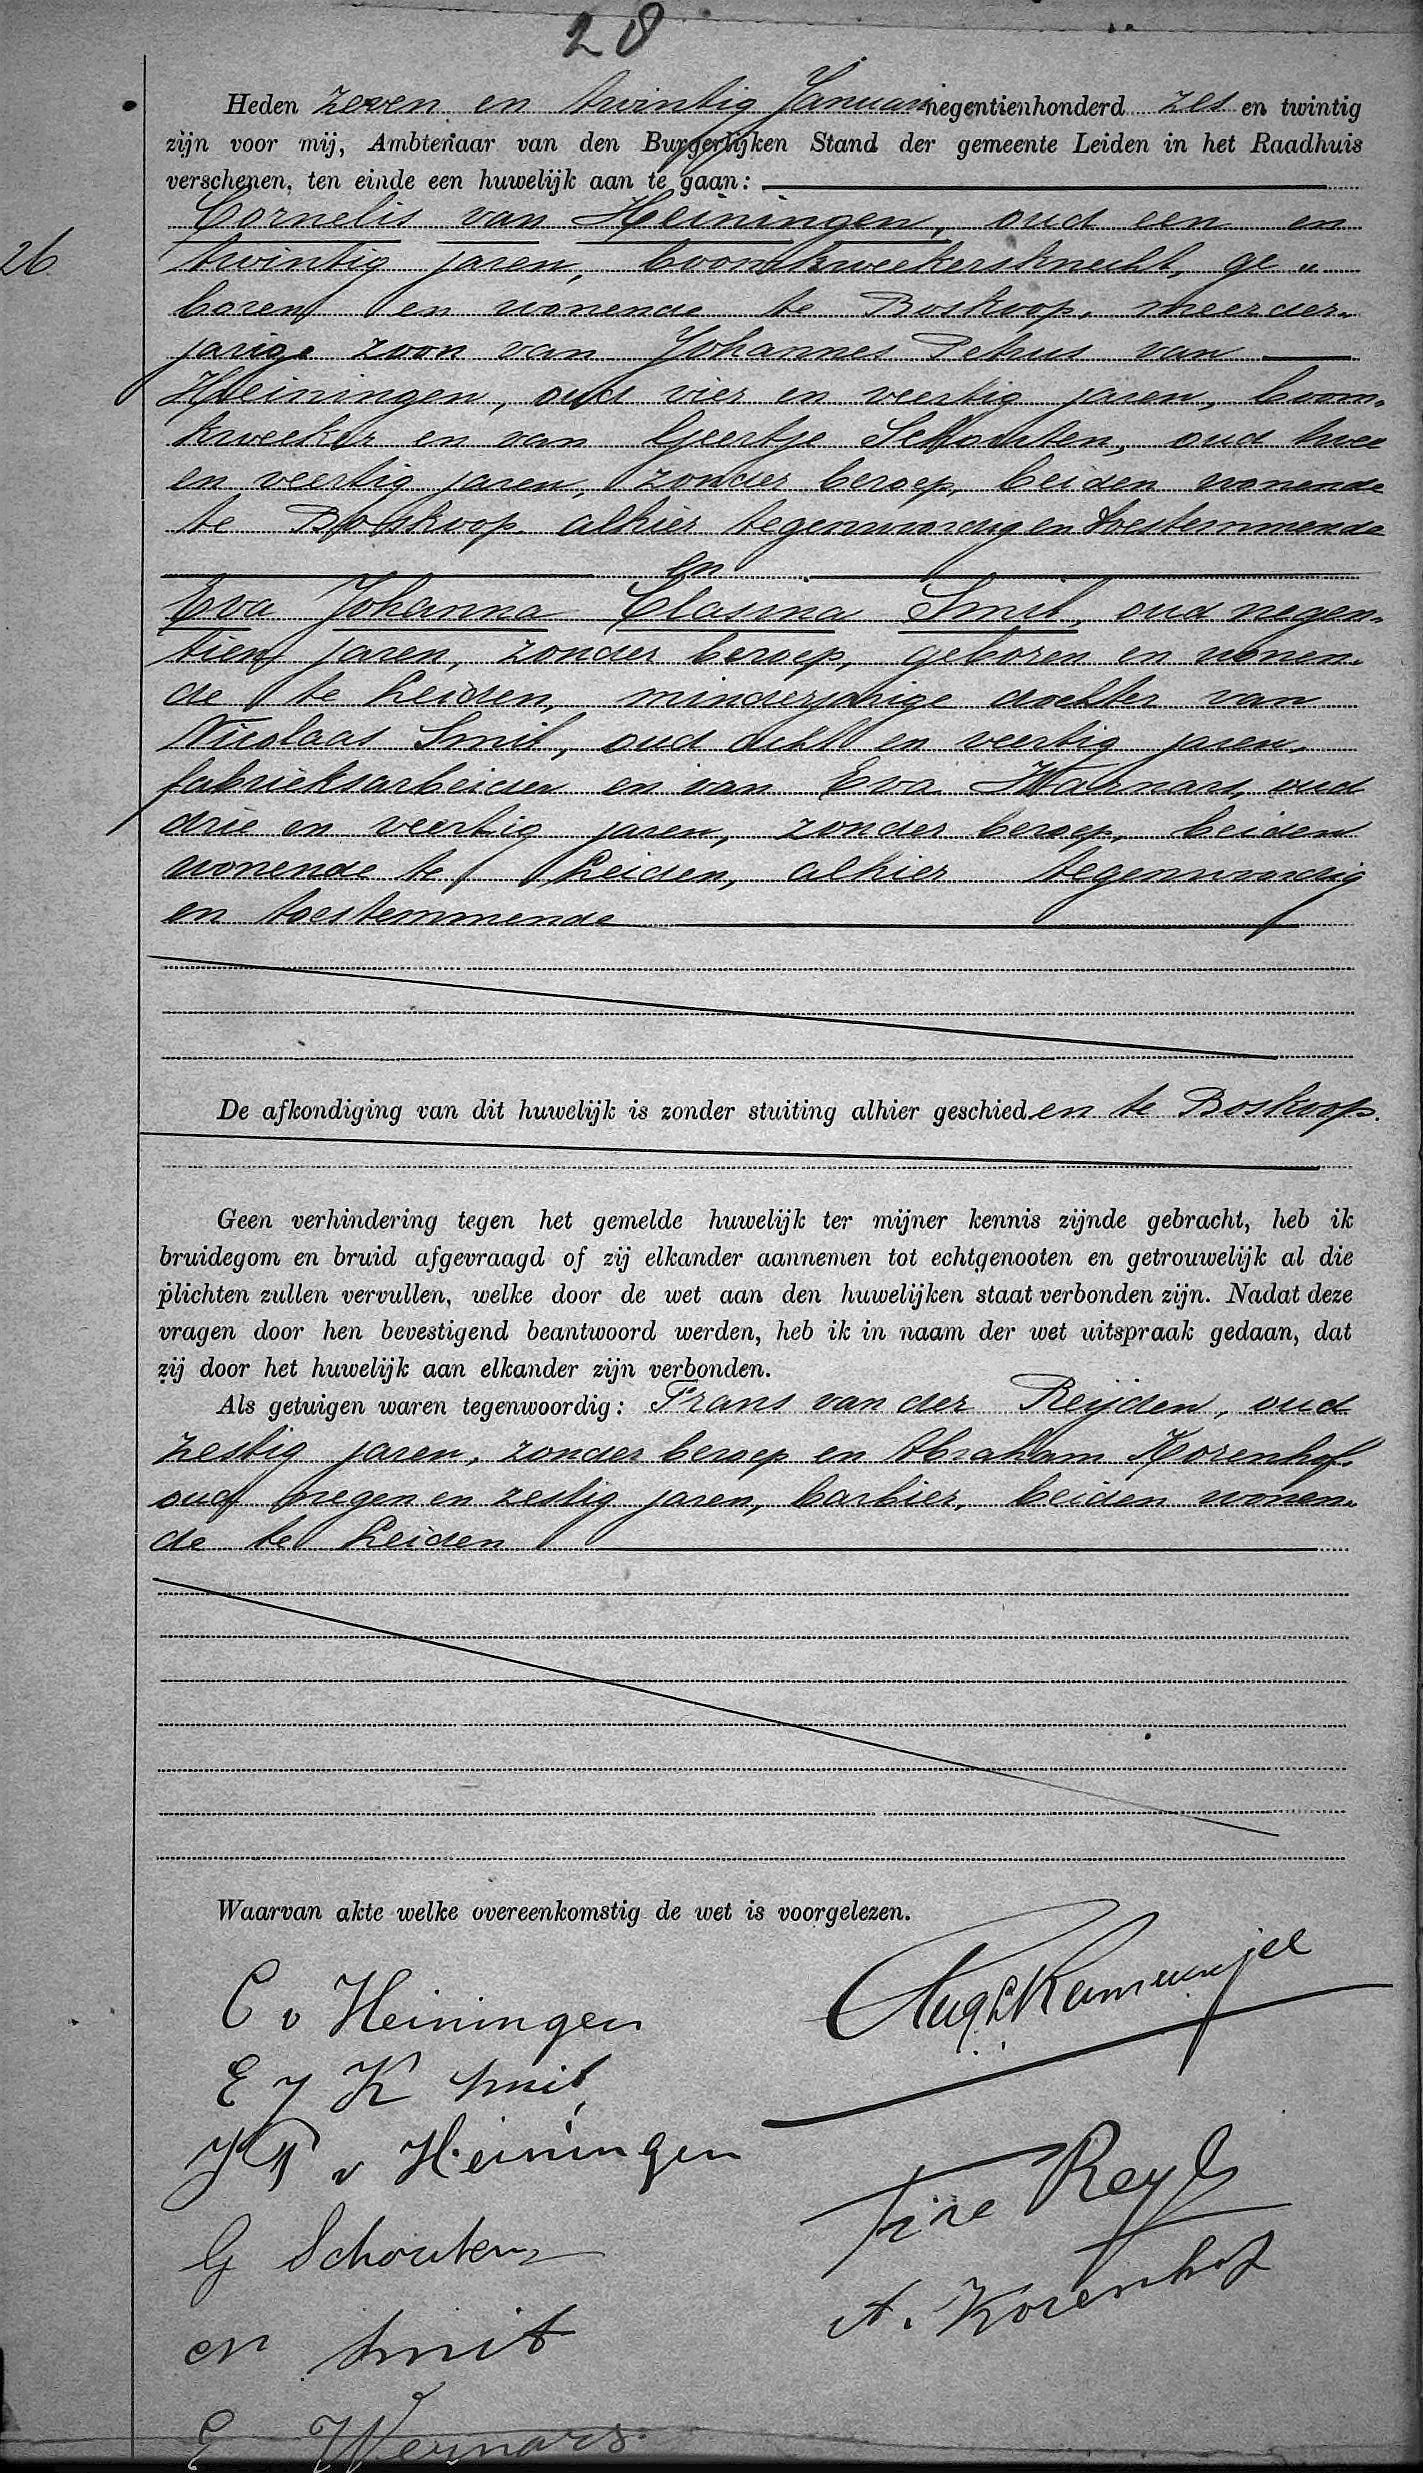 28
Heden zeven en twintig Januari negentienhonderd zes en twintig
zijn voor mij, Ambtenaar van den Burgerlijken Stand der gemeente Leiden in het Raadhuis
verschenen, ten einde een huwelijk aan te gaan:
Cornelis van Heiningen, oud een en
26
twintig jaren, boomkweekersknecht, ge„
boren en wonende te Boskoop, meerder„
jarige zoon van Johannes Petrus van
Heiningen, oud vier en veertig jaren, boom„
kweeker en van Geertje Schouten, oud twee
en veertig jaren, zonder beroep, beiden wonende
te Boskoop, alhier tegenwoordig en toestemmende
en
Eva Johanna Clasina Smit, oud negen„
tien jaren, zonder beroep, geboren en wonen„
de te Leiden, minderjarige dochter van
Nicolaas Smit, oud acht en veertig jaren,
fabrieksarbeider en van Eva Warnars, oud
drie en veertig jaren, zonder beroep, beiden
wonende te Leiden, alhier tegenwoordig
en toestemmende
De afkondiging van dit huwelijk is zonder stuiting alhier geschied en te Boskoop.
Geen verhindering tegen het gemelde huwelijk ter mijner kennis zijnde gebracht, heb ik
bruidegom en bruid afgevraagd of zij elkander aannemen tot echtgenooten en getrouwelijk al die
plichten zullen vervullen, welke door de wet aan den huwelijken staat verbonden zijn. Nadat deze
vragen door hen bevestigend beantwoord werden, heb ik in naam der wet uitspraak gedaan, dat
zij door het huwelijk aan elkander zijn verbonden.
Als getuigen waren tegenwoordig: Frans van der Reijden, oud
zestig jaren, zonder beroep en Abraham Korenhof,
oud negen en zestig jaren, barbier, beiden wonen„
de te Leiden
Waarvan akte welke overeenkomstig de wet is voorgelezen.
C v Heiningen
E J K Smit
J P v Heiningen
G Schouten
N Smit
E Wernars.
A. Korenhof